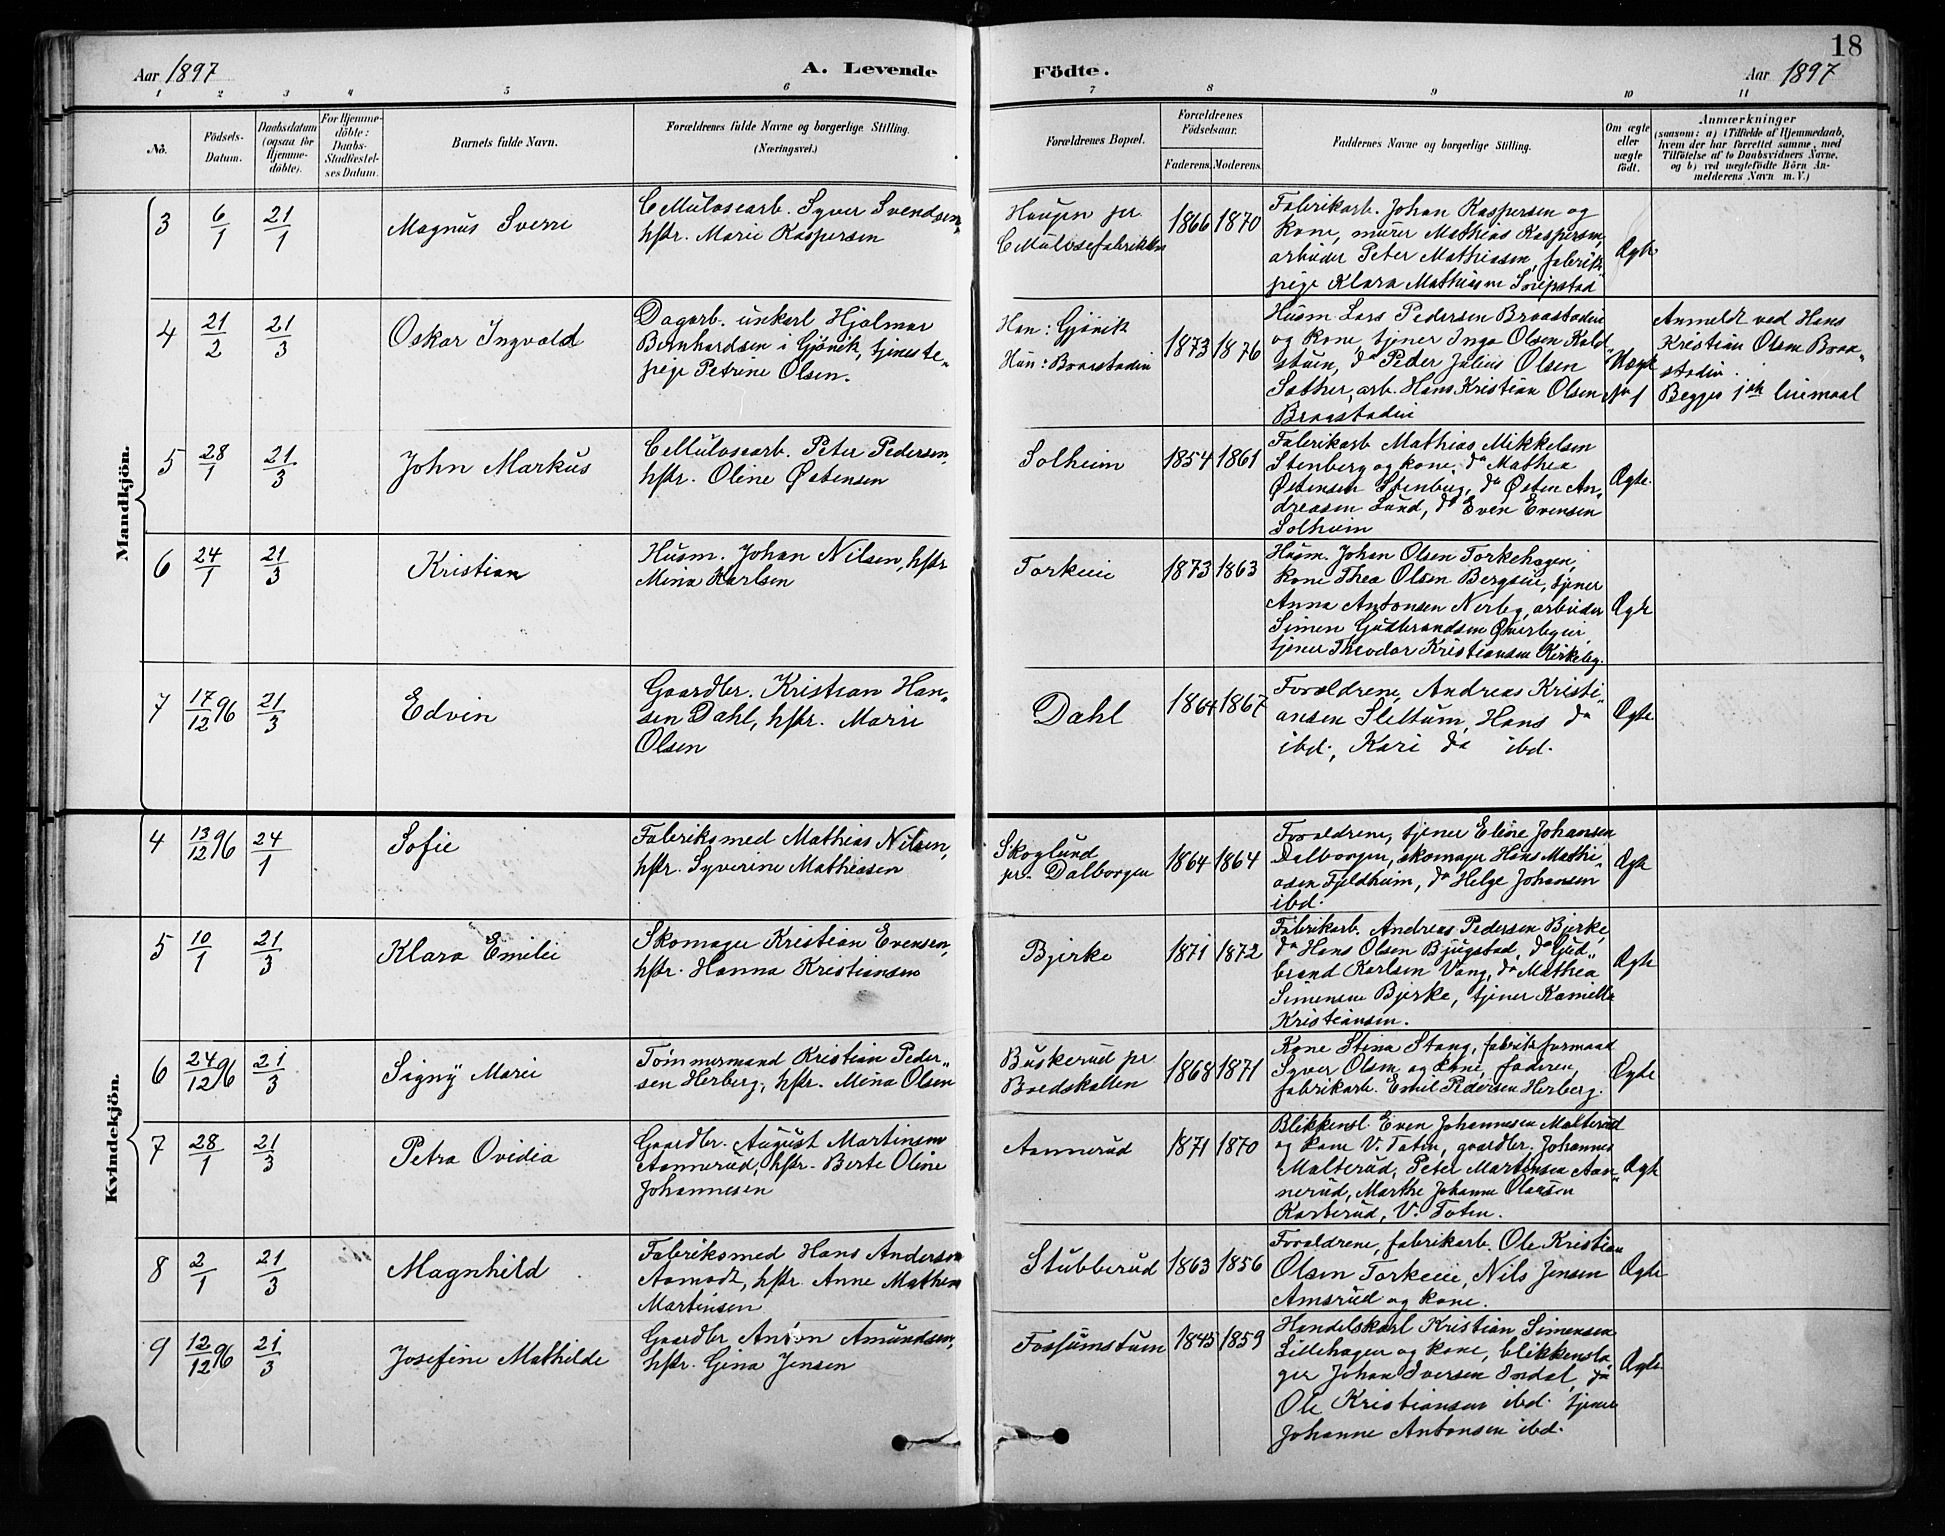 18
Aar 1897
A. Levende
Födte.
Aar 1897
1 2 3 4 5 6
7 8 9 10 11
No.
Födsels-
Datum.
Daabsdatum
(ogsaa for
Hjemme-
döbte).
For Hjemme-
döbte:
Daabs-
Stadfæstel-
ses Datum.
Barnets fulde Navn.
Forældrenes fulde Navne og borgerlige Stilling.
(Næringsvei.)
Forældrenes Bopæl.
Forældrenes
Födselsaar.
Faderens. Moderens.
Faddernes Navne og borgerlige Stilling.
Om ægte
eller
uægte
födt.
Anmærkninger
(saasom: a) i Tilfælde af Hjemmedaab,
hvem der har forrettet samme, med
Tilföielse af to Daabsvidners Navne,
og b) ved uægtefödte Börn An-
melderens Navn m. V.)
Mandkjön.
3
6/1
21/1
Magnus Sverre
Cellulosearb. Syver Svendsen,
hstr. Marie Kaspersen
Haugen pr.
Cellulosefabrikken
1866 1870
Fabrikarb. Johan Kaspersen og
kone, murer Mathias Kaspersen,
arbeider Peter Mathiassen, fabrik-
pige Klara Mathiassen
Ægte
4
21/2
21/3
Oskar Ingvald
Dagarb. unkarl Hjalmar
Bernhardsen i Gjövik, tjeneste-
pige Petrine Olsen.
Han: Gjövik
Hun: Braastadeie
1873 1876
Husm. Lars Pedersen Braastadeie
og kone, tjener Inga Olsen Kold-
stuen, do Peder Julius Olsen
Sother, arb. Hans Kristian Olsen
Braastadeie
Uægte
No 1
Anmeldt ved Hans
Kristian Olsen Braa-
stadeie.
Begges 1ste leiermaal
5
28/1
21/3
John Markus
Cellulosearb. Peter Pedersen,
hstr. Oline Østensen
Solheim
1854 1861
Fabrikarb Mathias Mikkelsen
Stenberg og kone, do Mathea
Østensen Stenberg, do Østen An-
dreasen Lund, do Even Evensen
Solheim
Ægte.
6
24/1
21/3
Kristian
Husm. Johan Nilsen, hstr
Mina Karlsen
Torkeie
1873 1863
Husm. Johan Olsen Torkehagen,
kone Thea Olsen Bergseie, tjener
Anna Antonsen Nerby, arbeider
Simen Gudbrandsen Øverbyeie,
tjener Theodor Kristiansen Kirkeby.
Ægte
7
17/12 96
21/3
Edvin
Gaardbr. Kristian Han-
sen Dahl, hstr. Marie
Olsen
Dahl
1864 1867
Forældrene, Andreas Kristi-
ansen Slettum, Hans do
ibd., Kari do ibd.
Ægte
Kvindekjön.
4
13/12 96
24/1
Sofie
Fabriksmed Mathias Nilsen,
hstr. Syverine Mathiassen
Skoglund
pr. Dalborgen
1864 1864
Forældrene, tjener Eline Johansen
Dalborgen, skomager Hans Mathi-
asen Fjeldheim, do Helge Johansen
ibd.
Ægte
5
10/1
21/3
Klara Emilie
Skomager Kristian Evensen,
hstr. Hanna Kristiansen
Bjerke
1871 1872
Fabrikarb. Andreas Pedersen Bjerke,
do Hans Olsen Bjugstad, do Gud-
brand Karlsen Vang, do Mathea
Simensen Bjerke, tjener Kamilla
Kristiansen.
Ægte
6
24/12 96
21/3
Signy Marie
Tömmermand Kristian Peder-
sen Herberg, hstr. Mina Olsen
Buskerud pr
Bredskallen
1868 1871
Kone Stina Stang, fabrikformand
Syver Olsen og kone, faderen,
fabrikarb. Emil Pedersen Herberg.
Ægte
7
28/1
21/3
Petra Ovidia
Gaardbr. August Martinsen
Aannerud, hstr. Berte Oline
Johannesen
Aannerud
1871 1870
Blikkensl. Even Johannesen Malterud
og kone V. Toten, gaardbr. Johannes
Malterud, Peter Martinsen Aan-
nerud, Marthe Johanne Olausen
Karterud, V. Toten.
Ægte
8
2/1
21/3
Magnhild
Fabriksmed Hans Andersen
Aamodt, hstr Anne Mathea
Martinsen
Stubberud
1863 1856
Forældrene, fabrikarb. Ole Kristian
Olsen Torkeeie, Nils Jensen
Amsrud og kone.
Ægte
9
12/12 96
21/3
Josefine Mathilde
Gaardbr Anton Amundsen,
hstr. Gina Jensen
Fossumstuen
1845 1859
Handelskarl Kristian Simensen
Lillehagen og kone, blikkensla-
ger Johan Iversen Indal, do
Ole Kristiansen ibd. tjener
Johanne Antonsen ibd.
Ægte